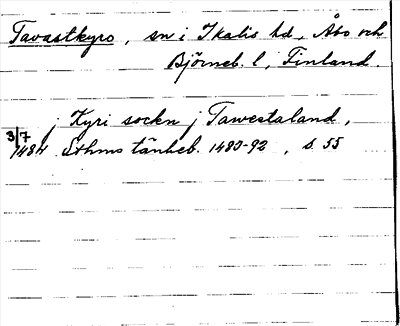 Tavastkyro, sn i Ikalis hd, Åbo och
Björneb. l, Finland.
j Kyri sockn j Tawestaland,
3/7
1484 Sthms tänkeb. 1483-92, s. 55